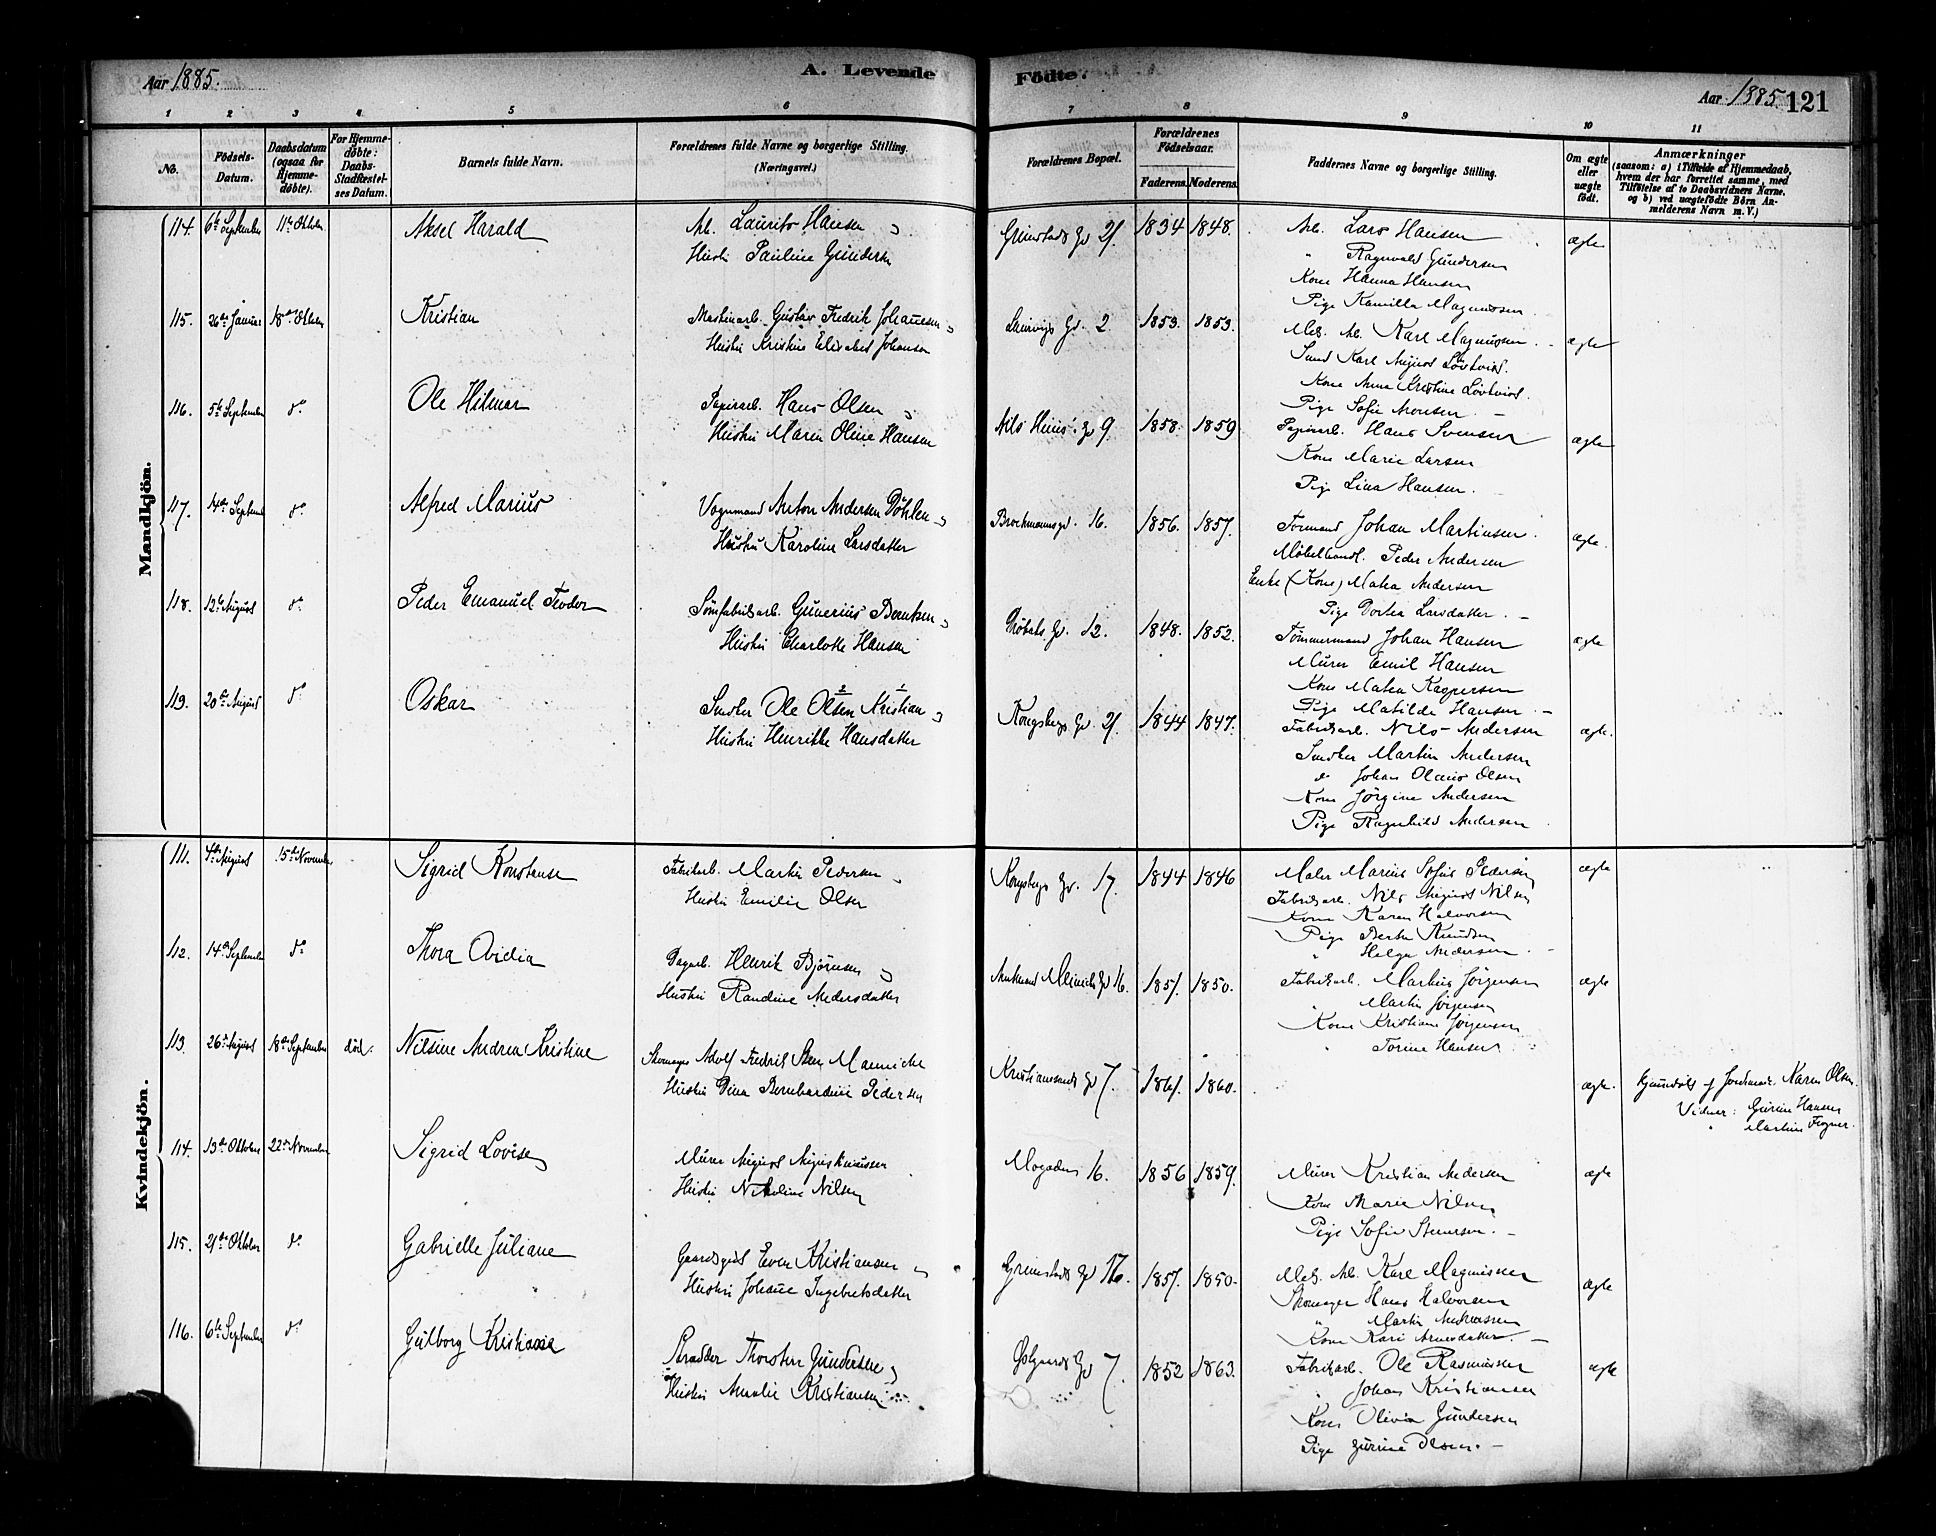 Aar 1885.
A. Levende Födte.
Aar 1885. 121
1 2 3 4 5 6 7 8 9 10 11
No.
Födsels-Datum.
Daabsdatum (ogsaa for Hjemmedöbte).
For Hjemmedöbte: Daabs-Stadfæstelses Datum.
Barnets fulde Navn.
Forældrenes fulde Navne og borgerlige Stilling. (Næringsvei.)
Forældrenes Bopæl.
Forældrenes Födselsaar.
Faderens. Moderens.
Faddernes Navne og borgerlige Stilling.
Om ægte eller uægte födt.
Anmærkninger (saasom: a) i Tilfælde af Hjemmedaab, hvem der har forrettet samme, med Tilföielse af to Daabsvidners Navne, og b) ved uægtefödte Börn Anmelderens Navn m. V.)
Mandkjön.
114. 6te September 11te Oktober Aksel Harald Arb. Laurits Hansen Grimstads Gd 21. 1834 1848. Arb. Lars Hansen ægte
Hustru Pauline Gundersen " Ragnvald Gundersen
Kone Hanna Hansen
Pige Kamilla Magnussen
115. 26de Januar 18de Oktober Kristian Maskinarb. Gustav Fredrik Johannesen Laurvigs Gd. 2. 1853. 1853. Mek. Arb. Karl Magnussen ægte
Hustru Kristine Elisabet Johansen Karl August
Kone Anna Kristine
Pige Sofie Monsen
116. 5te September do Ole Hilmar Papirarb. Hans Olsen Nils Gd 9. 1858. 1859 Papirarb. Hans Svensen ægte
Hustru Maren Oline Hansen Kone Marie Larsen
Pige Lina Hansen
117. 14de Septemb. do Alfred Marius Vognmand Anton Andersen Döhlen Brochmannsgd. 16. 1856. 1857. Formand Johan Martinsen ægte.
Hustru Karoline Larsdatter Möbelhandl. Peder Andersen
Enke (Kone) Matea Andersen
Pige Dortea Larsdatter
118. 12te August do Peder Emanuel Teodor Sömfabrikarb. Gunerius Berntsen Dröbaks Gd. 12. 1848. 1852. Tömmermand Johan Hansen ægte
Hustru Charlotte Hansen Murer Emil Hansen
Kone Matea Kaspersen
Pige Matilde Hansen
119. 20de August do Oskar Snedker Ole Olsen Kristian Kongsbergs Gd 21. 1844 1847. Fabrikarb. Nils Andersen ægte.
Hustru Henrikke Hansdatter Snedker Martin Andersen
do Johan Olaus Olsen
Kone Jörgine Andersen
Pige Ragnhild Andersen
Kvindekjön.
111. 4de August 15de November Sigrid Konstanse Fabrikarb. Martin Pedersen Kongsbergs Gd. 17. 1844 1846 Maler Marius Sofus Pedersen ægte
Hustru Emilie Olsen Fabrikarb. Nils August Nilsen
Kone Karen Halvorsen
Pige Berte Knudsen
" Helga Andersen
112. 14de September do Thora Ovidia Dagarb. Henrik Björnsen Gd 16. 1851. 1850. Fabrikarb. Martin Jörgensen ægte
Hustru Randine Andersdatter " Martin Jörgensen
Kone Kristiane Jörgensen
" Torine Hansen
113. 26de August 18de September död. Nilsine Andrea Kristine Skomager Adolf Fredrik Sten Mannicke Kristianssands Gd 7. 1861. 1860. ægte. hjemmedöbt af Jordmoder Karen Olsen
Hustru Dina Bernhardine Pedersen Vidner: Gurine Hansen
" Martine
114. 13de Oktober 22de November Sigrid Lovise Murer August Augustinussen Mogaden 16. 1856 1859. Murer Kristian Andersen ægte
Hustru Nikoline Nilsen Kone Marie Nilsen
Pige Sofie
115. 21de Oktober do Gabrielle Juliane Gaardsgut Even Kristiansen Grimstads Gd 16. 1857. 1850. Mek. Arb. Karl Magnussen ægte
Hustru Johanne Ingebretsdatter Skomager Hans Halvorsen
" Martin Andreassen
Kone Kari Arnesdatter
116. 6te September do Gulborg Kristiane Thorsten Gundersen Östgaards Gd 7. 1852 1863. Fabrikarb. Ole Rasmussen ægte
Hustru Amalie Kristiansen " Johan Kristiansen
Kone Olivia Gundersen
Pige Gurine Olsen